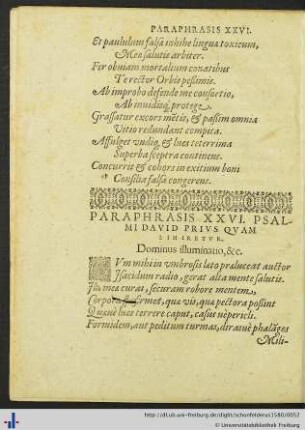 PARAPHRASIS XXVI.
Et paululum falsâ inhibe lingua toxicum,
Meæ salutis arbiter.
Fer obuiam mortalium conatibus
Te rector Orbis pessimis.
Ab improbo defende me consortio,
Ab inuidiaq; protege.
Grassatur excors & passim omnia
Vitio redundant compita.
Affulget vndiq, & lues teterrima
Superba sceptra continens.
Concurrit & cohors in exitium boni
Consilia falsa congerens.
PARAPHRASIS XXVI. PSAL-
MI DAVID PRIVS QVAM
LINIRETVR.
Dominus illuminatio, &c.
DVm mihi in vmbrosis lato præluceat auctor
Isacidum radio, gerat alta mente salutis.
Ille mea curat, securam robore mentem,
Corpora firmet, qua vis, qua pectora possint
Quauè lues terrere caput, casus vè pericli.
Formidem, aut peditum turmas, diraúe phalāges
Mili-
http://dl.ub.uni-freiburg.de/diglit/schonfelderus1580/0052
© Universitätsbibliothek Freiburg